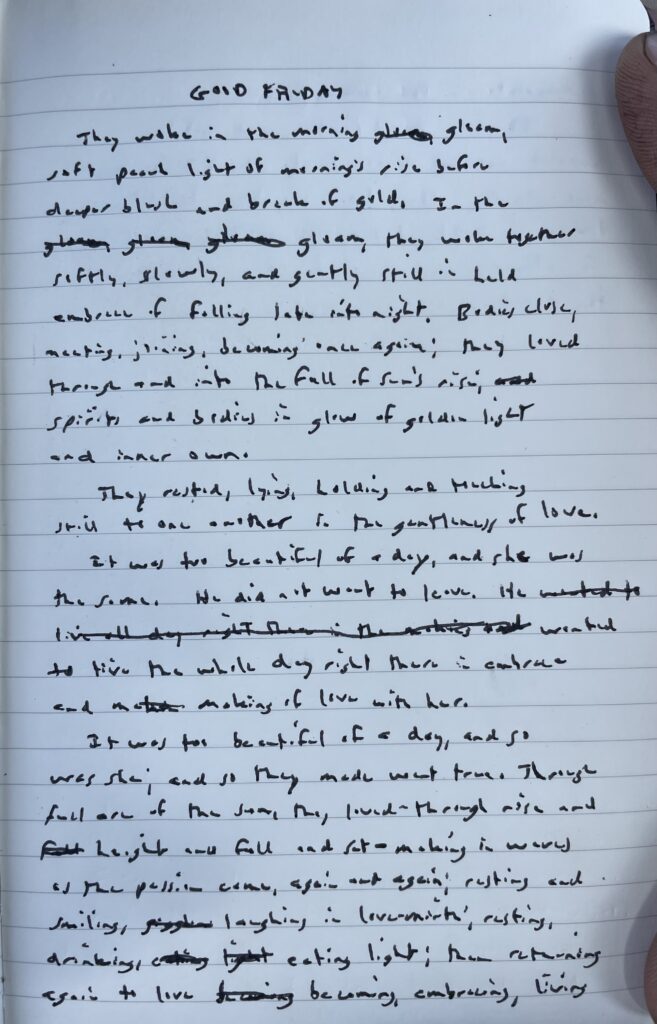 GOOD FRIDAY
They woke in the morning gloam,
soft peach light of morning's rise before
deeper blush and break of gold. In the
gloam, they woke together
softly, slowly, and gently still in held
embrace of falling late into night. Bodies close,
meeting, joining, becoming once again; they loved
through and into the full of sun's rise,
spirits and bodies in glow of golden light
and inner own.
They rested, lying, holding and touching
still to one another in the gentleness of love.
It was too beautiful of a day, and she was
the same. He did not want to leave. He wanted to
live all day right there in the making and wanted
to live the whole day right there in embrace
and making of love with her.
It was too beautiful of a day, and so
was she; and so they made want true. Through
full arc of the sun, they loved-through rise and
fall height and fall and set-making in waves
as the passion came, again and again; resting and
smiling, laughing in love-mirth; resting,
drinking, eating light eating light; then returning
again to love becoming becoming, embracing, living